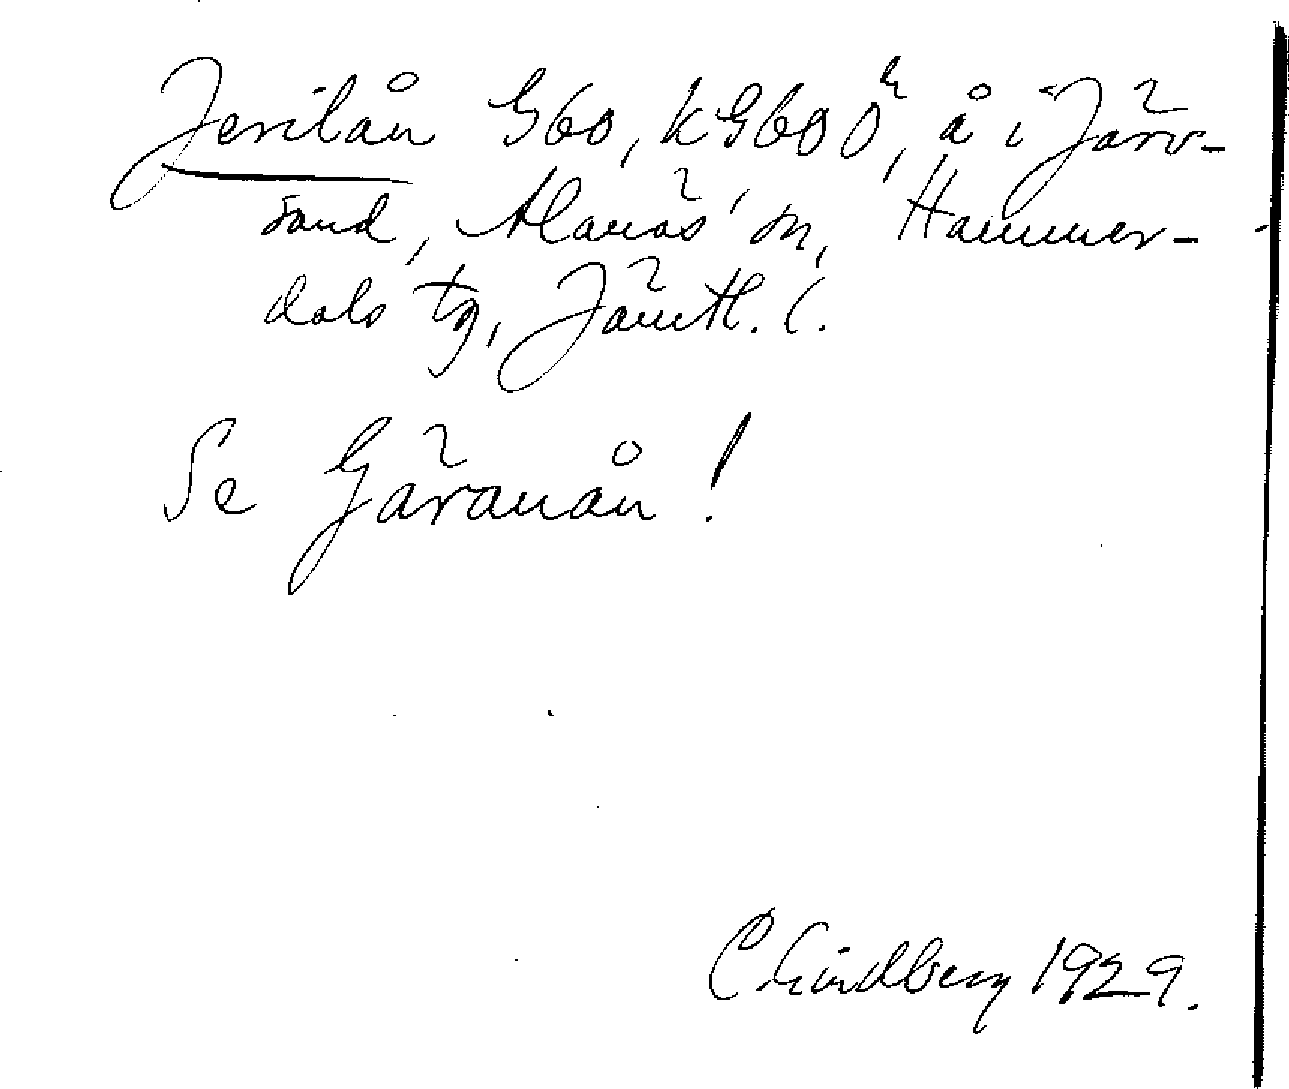 Jerilån G60, kG60Ö, å i Järv-
sand, Alanäs sn, Hammer-
dals tg, Jämtl. l.
Se Gäranån!
C Lindberg 1929.